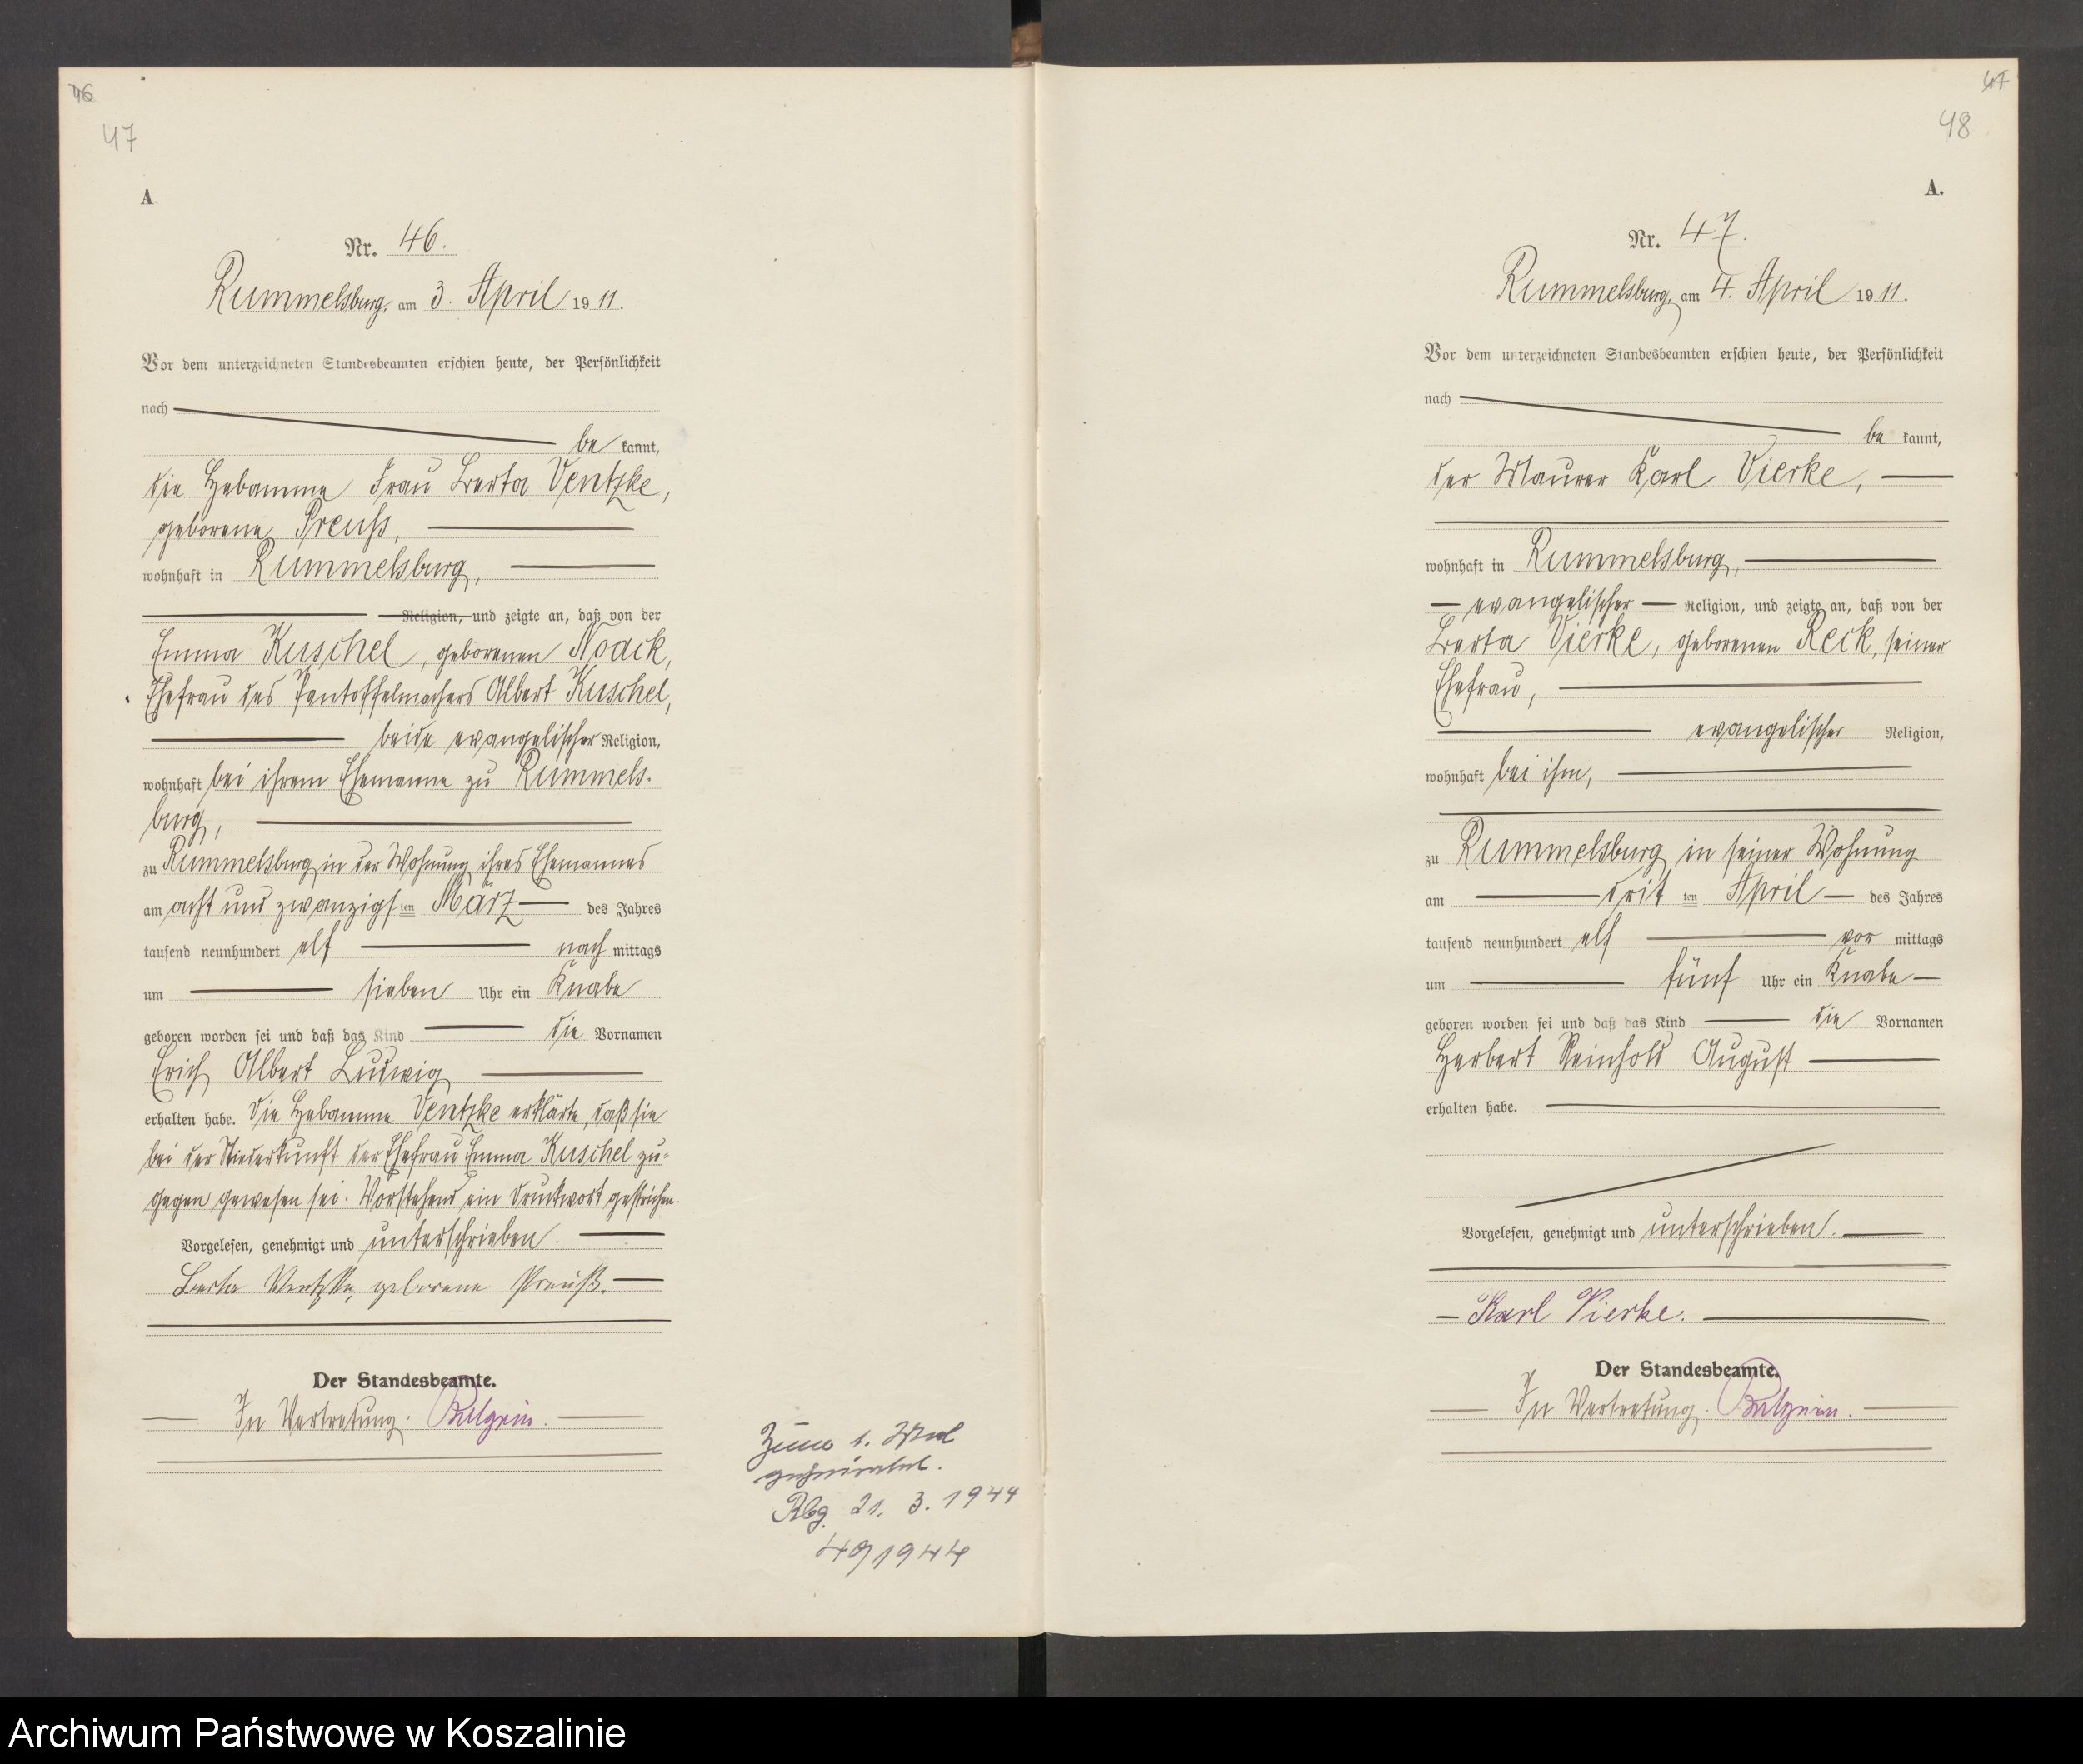 46
47
A
Nr. 46.
Rummelsburg, am 3. April 1911.
Vor dem unterzeichneten Standesbeamten erschien heute, der Persönlichkeit
nach
be kannt,
die Hebamme Frau Berta Ventzke,
geborene Preuß,
wohnhaft in Rummelsburg,
Religion, und zeigte an, daß von der
Emma Kuschel, geborenen Noack,
Ehefrau des Pantoffelmachers Albert Kuschel,
beide evangelischer Religion,
wohnhaft bei ihrem Ehemanne zu Rummels-
burg,
zu Rummelsburg in der Wohnung ihres Ehemannes
am acht und zwanzigsten März des Jahres
tausend neunhundert elf nach mittags
um sieben Uhr ein Knabe
geboren worden sei und daß das Kind die Vornamen
Erich Albert Ludwig
erhalten habe. Die Hebamme Ventzke erklärte, daß sie
bei der Niederkunft der Ehefrau Emma Kuschel zu-
gegen gewesen sei. Vorstehend ein Druckwort gestrichen.
Vorgelesen, genehmigt und unterschrieben.
Berta Ventzke, geborene Preuß.
Der Standesbeamte.
In Vertretung.
Zum 1. Mal
geheiratet.
Rbg. 21. 3. 1944
49/1944
47
48
A.
Nr. 47.
Rummelsburg, am 4. April 1911.
Vor dem unterzeichneten Standesbeamten erschien heute, der Persönlichkeit
nach
be kannt,
der Maurer Karl Vierke,
wohnhaft in Rummelsburg,
evangelischer Religion, und zeigte an, daß von der
Berta Vierke, geborenen Reck, seiner
Ehefrau,
evangelischer Religion,
wohnhaft bei ihm,
zu Rummelsburg in seiner Wohnung
am dritten April des Jahres
tausend neunhundert elf vor mittags
um fünf Uhr ein Knabe
geboren worden sei und daß das Kind die Vornamen
Herbert Reinhold August
erhalten habe.
Vorgelesen, genehmigt und unterschrieben.
Karl Vierke.
Der Standesbeamte.
In Vertretung.
Archiwum Państwowe w Koszalinie